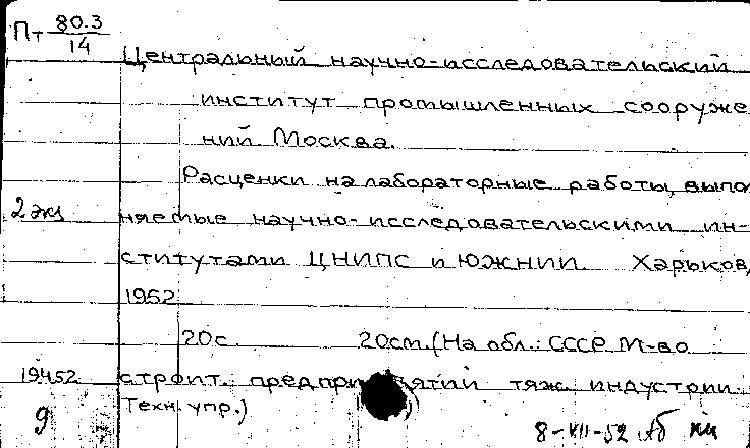 Пт 80.3
14
Центральный научно-исследовательский
институт промышленных сооруже
ний Москва.
Расценки на лабораторные работы, выпол
2 экз
няемые научно-исследовательскими ин-
ститутами ЦНИПС и ЮЖНИИ Харьков,
1952
20 с. 20 см. (На обл.: СССР. М-во
19452
строит. предприятий тяж. индустрии.
9
Техн. упр.)
8-VII-52